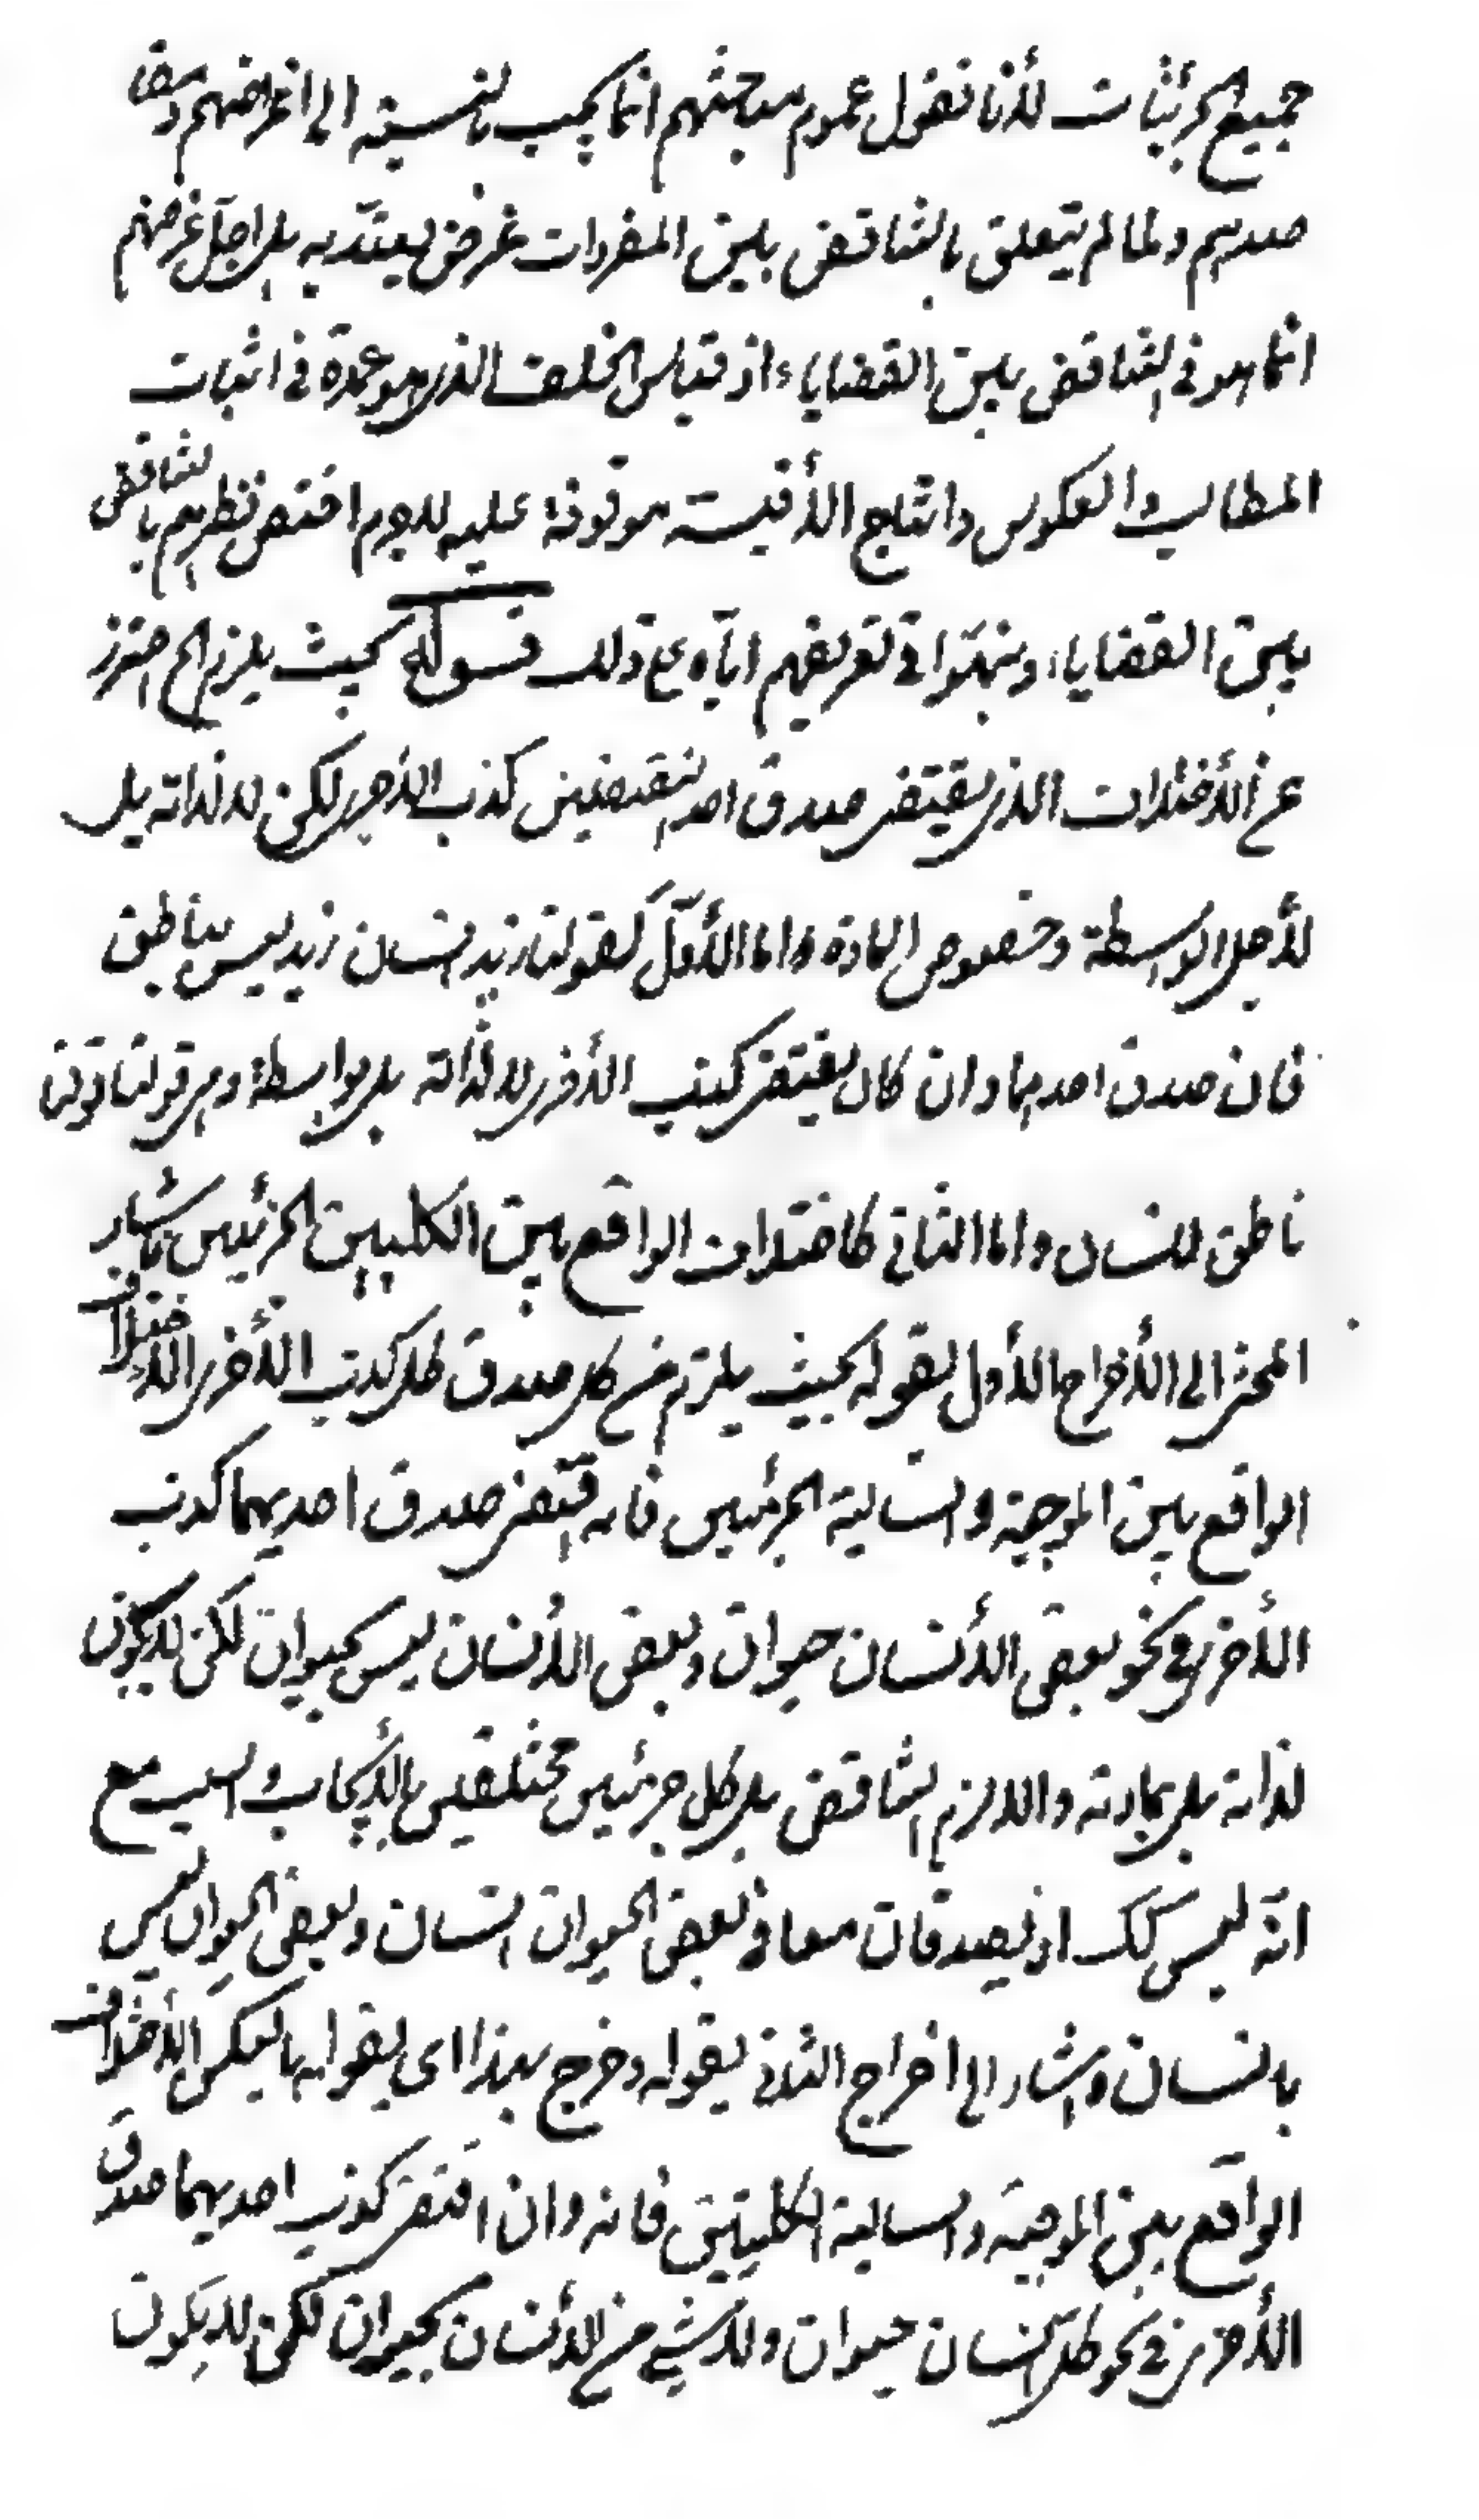 جميع الجزئيات لأنا نقول عموم مباحثهم انما يجب بالنسبة الى اغراضهم ومقا
صدهم ولما لم يتعلق بالتناقض بين المفردات غرض يعتد به بل اجل غرضهم
انما هو فى التناقض بين القضايا اذ قياس الخلف الذى هو عمدة فى اثبات
المطالب والعكوس وانتاج الأقيسة موقوفة عليه لاجرم اختص نظرهم بالتناقض
بين القضايا ونبهوا فى تعريفهم اياه على ذلك قسوله بحيث يلزم الخ احترز
عن الأختلاف الذى يقتضى صدق احد النقيضين كذب الأخرى لكن لا لذاته بل
لأجل الواسطة وخصوص المادة واما الأول كقولنا زيد انسان زيد ليس بناطق
فان صدق احديهما وان كان يقتضى كذب الأخرى لا لذاته بل بواسطة وهى قولنا توفى
ناطق انسان واما الثانى كاختلاف الواقع بين الكليين الجزئيين باشار
المحشى الى الأخراج الأول بقوله بحيث يلزم من كل صدق كل كذب الأخرى الاختلاف
الواقع بين الموجبة والسالبة الجزئيين فانه قتضى صدق احديهما كذب
الأخرى فى نحو بعض الأنسان حيوان وبعض الأنسان ليس بحيوان لكن لا يكون
لذاته بل بمادته واللازم التناقض بل كل جزئيين مختلفين بالإيجاب والسلب مع
انه ليس كك اذ يصدقان معا فى بعض الحيوان انسان وبعض الحيوان ليس
بانسان واشار الى اخراج الثانى بقوله وخرج بهذا اى بقوله بالعكس الأختلاف
الواقع بين الموجبة والسالبة الكليتين فانه وان اقتضى كذب احديهما صدق
الأخرى فى نحو كل انسان حيوان ولا شىء من الأنسان بحيوان لكن لا يكون